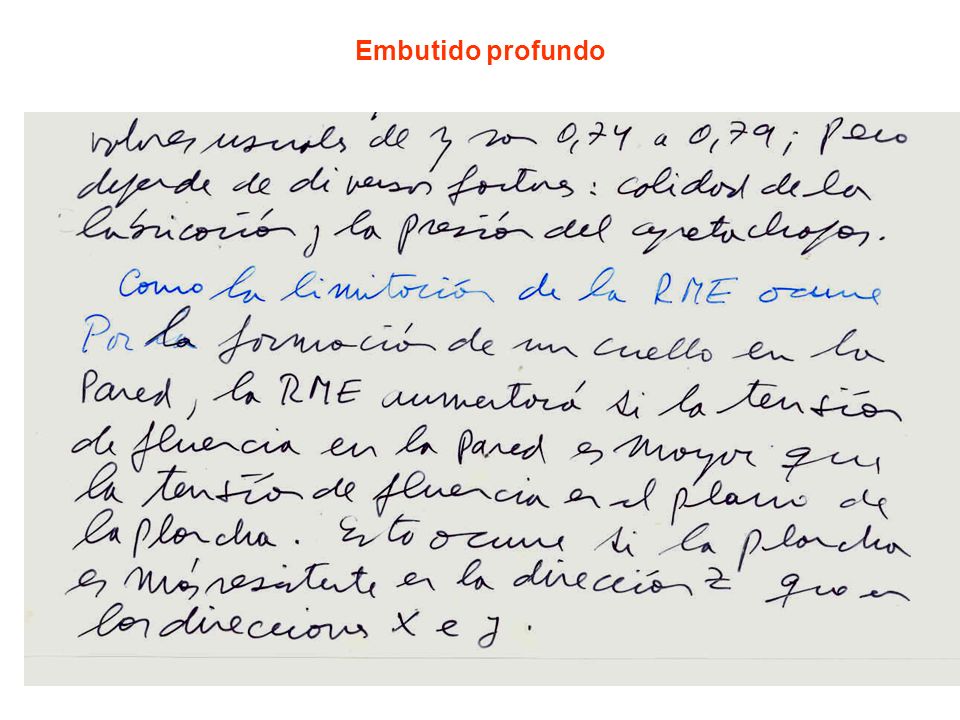 Embutido profundo
valores usuales de η son 0,74 a 0,79; pero
depende de diversos factores: calidad de la
lubricación y la presión del apretachapas.
Como la limitación de la RME ocurre
Por la formación de un cuello en la
Pared, la RME aumentará si la tensión
de fluencia en la pared es mayor que
la tensión de fluencia en el plano de
la plancha. Esto ocurre si la plancha
es más resistente en la dirección z que en
las direcciones x e y.